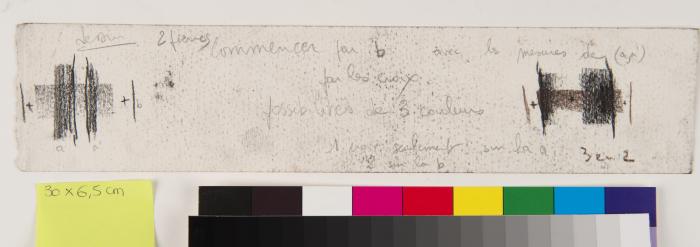 Dessin 2 pierres Commencer par b avec les mesures de (a, a')
par les croix.
possibilités de 3 couleurs
+ + b + +
a a'
1 noir seulement sur la a 3 en 2
2 sur la b
30 x 6,5 cm